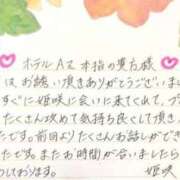 ホテルAZ 本指の貴方様
は、お誘い頂きありがとうございま
すぐに姫咲に会いに来てくれて、プ
たくさん攻めて気持ち良くして頂き
たです。前回よりたくさんお話しができ
たです。またお時間が合いましたら
しております。 姫咲